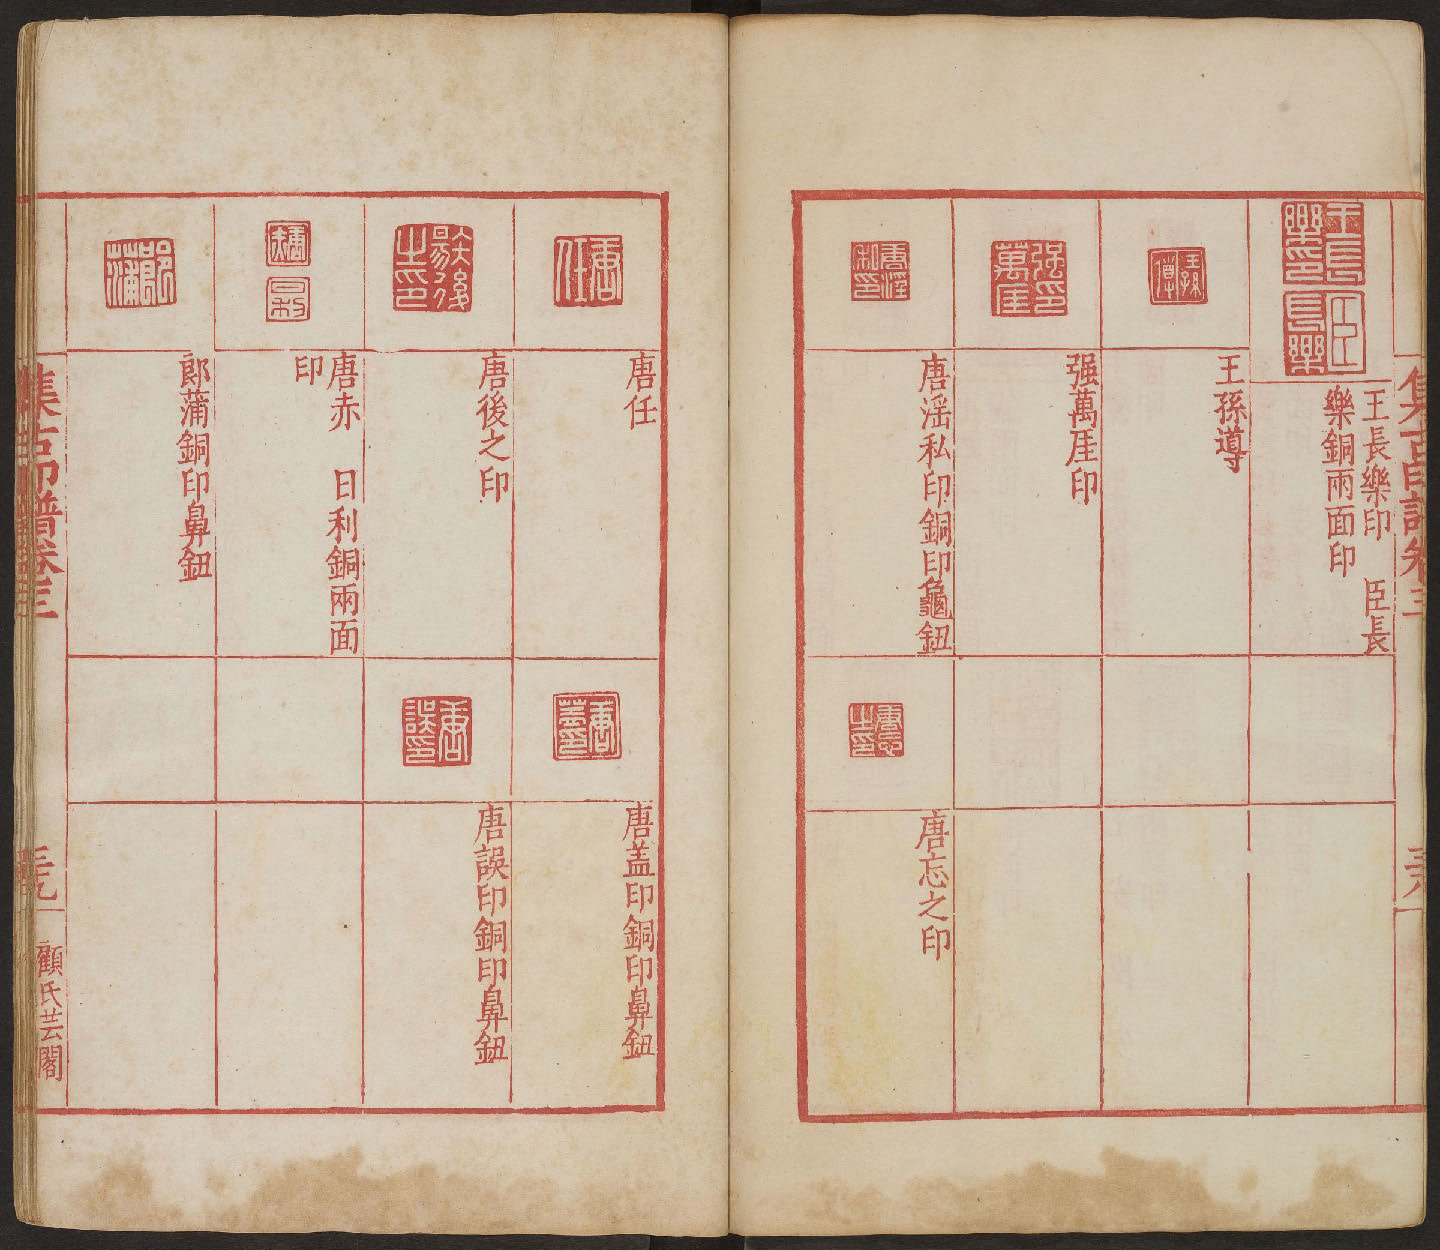 集古印譜卷三
王長樂印　臣長
樂銅兩面印
王孫導
强萬厓印
唐滛私印銅印龜鈕
唐忘之印
唐任
唐蓋印銅印鼻鈕
唐後之印
唐誤印銅印鼻鈕
唐赤　日利銅兩面
印
郎蒲銅印鼻鈕
集古印譜卷三
顧氏芸閣